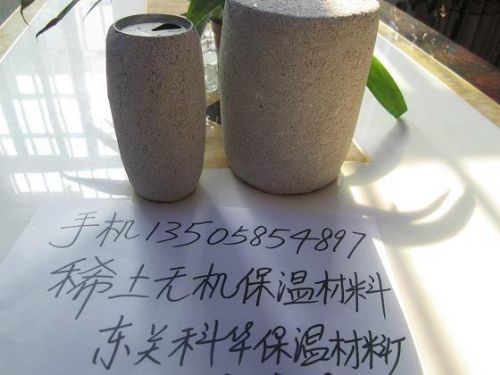 手机13505854897
稀土无机保温材料
东关科华保温材料厂